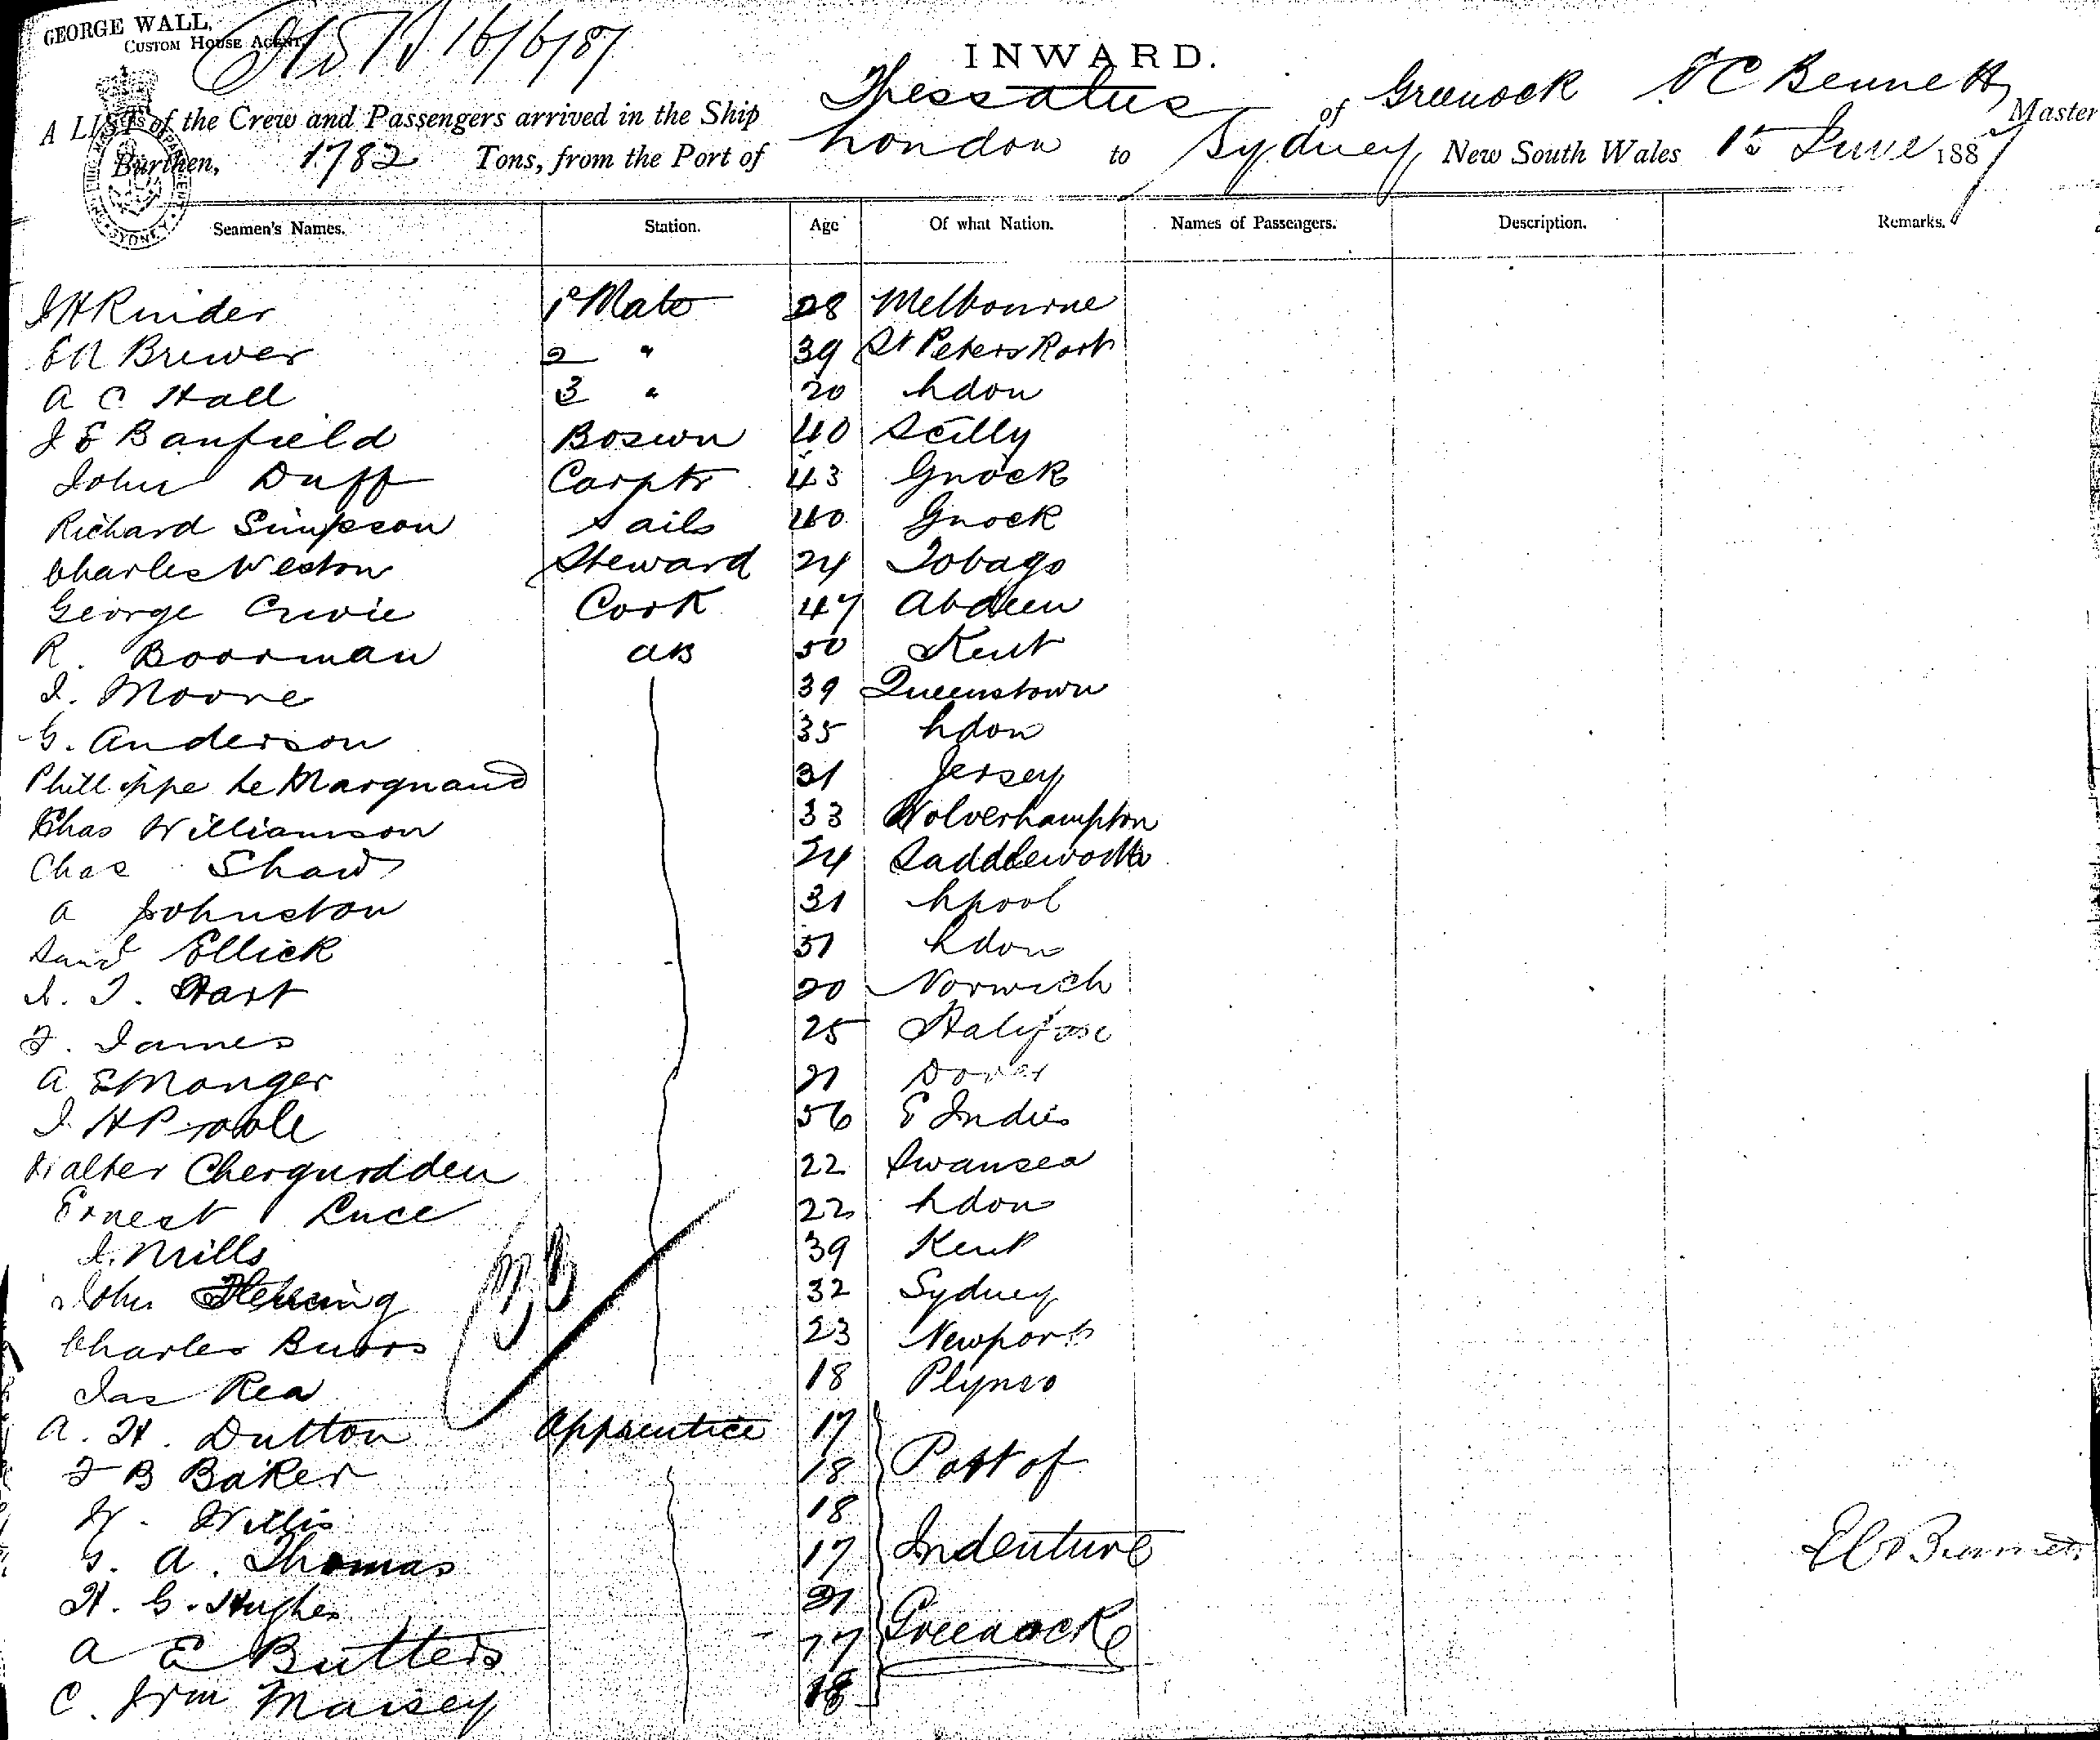 GEORGE WALL,
CUSTOM HOUSE AGENT,
16/6/87
INWARD.
A LIST of the Crew and Passengers arrived in the Ship Thessalus of Greenock E C Bennett Master
Burthen, 1782 Tons, from the Port of London to Sydney New South Wales 1st June 1887
Seamen's Names. Station. Age Of what Nation. Names of Passengers. Description. Remarks.
J H Rinder 1o Mate 28 Melbourne
E N Brewer 2 " 39 St Peters Port
A C Hall 3 " 20 Ldon
J E Banfield Boswn 40 Scilly
John Duff Carptr 43 Gnock
Richard Simpson Sails 40 Gnock
Charles Weston Steward 24 Tobago
George Crivie Cook 47 Abdeen
R. Boorman AB 50 Kent
J. Moore 39 Queenstown
G. Anderson 35 Ldon
Phillippe Le Marquand 31 Jersey
Chas Williamson 33 Wolverhampton
Chas Shaw 24 Saddleworth
A Johnston 31 Lpool
Saml Ellick 51 Ldon
A. J. Hart 20 Norwich
F. James 25 Halifax
A E Monger 21 Dover
J. H Poole 56 E Indies
Walter Chergwidden 22 Swansea
Ernest Luce 22 Ldon
J. Mills 39 Kent
John Fleming 32 Sydney
Charles Burrs 23 Newport
Jas Rea 18 Plymo
A. H. Dutton Apprentice 17
F B Baker 18 Port of
W. Willis 18
G. A. Thomas 17 Indenture
H. G. Hughes 21
A E Butters 17 Greenock
C. Wm Maisey 18
E C Bennett